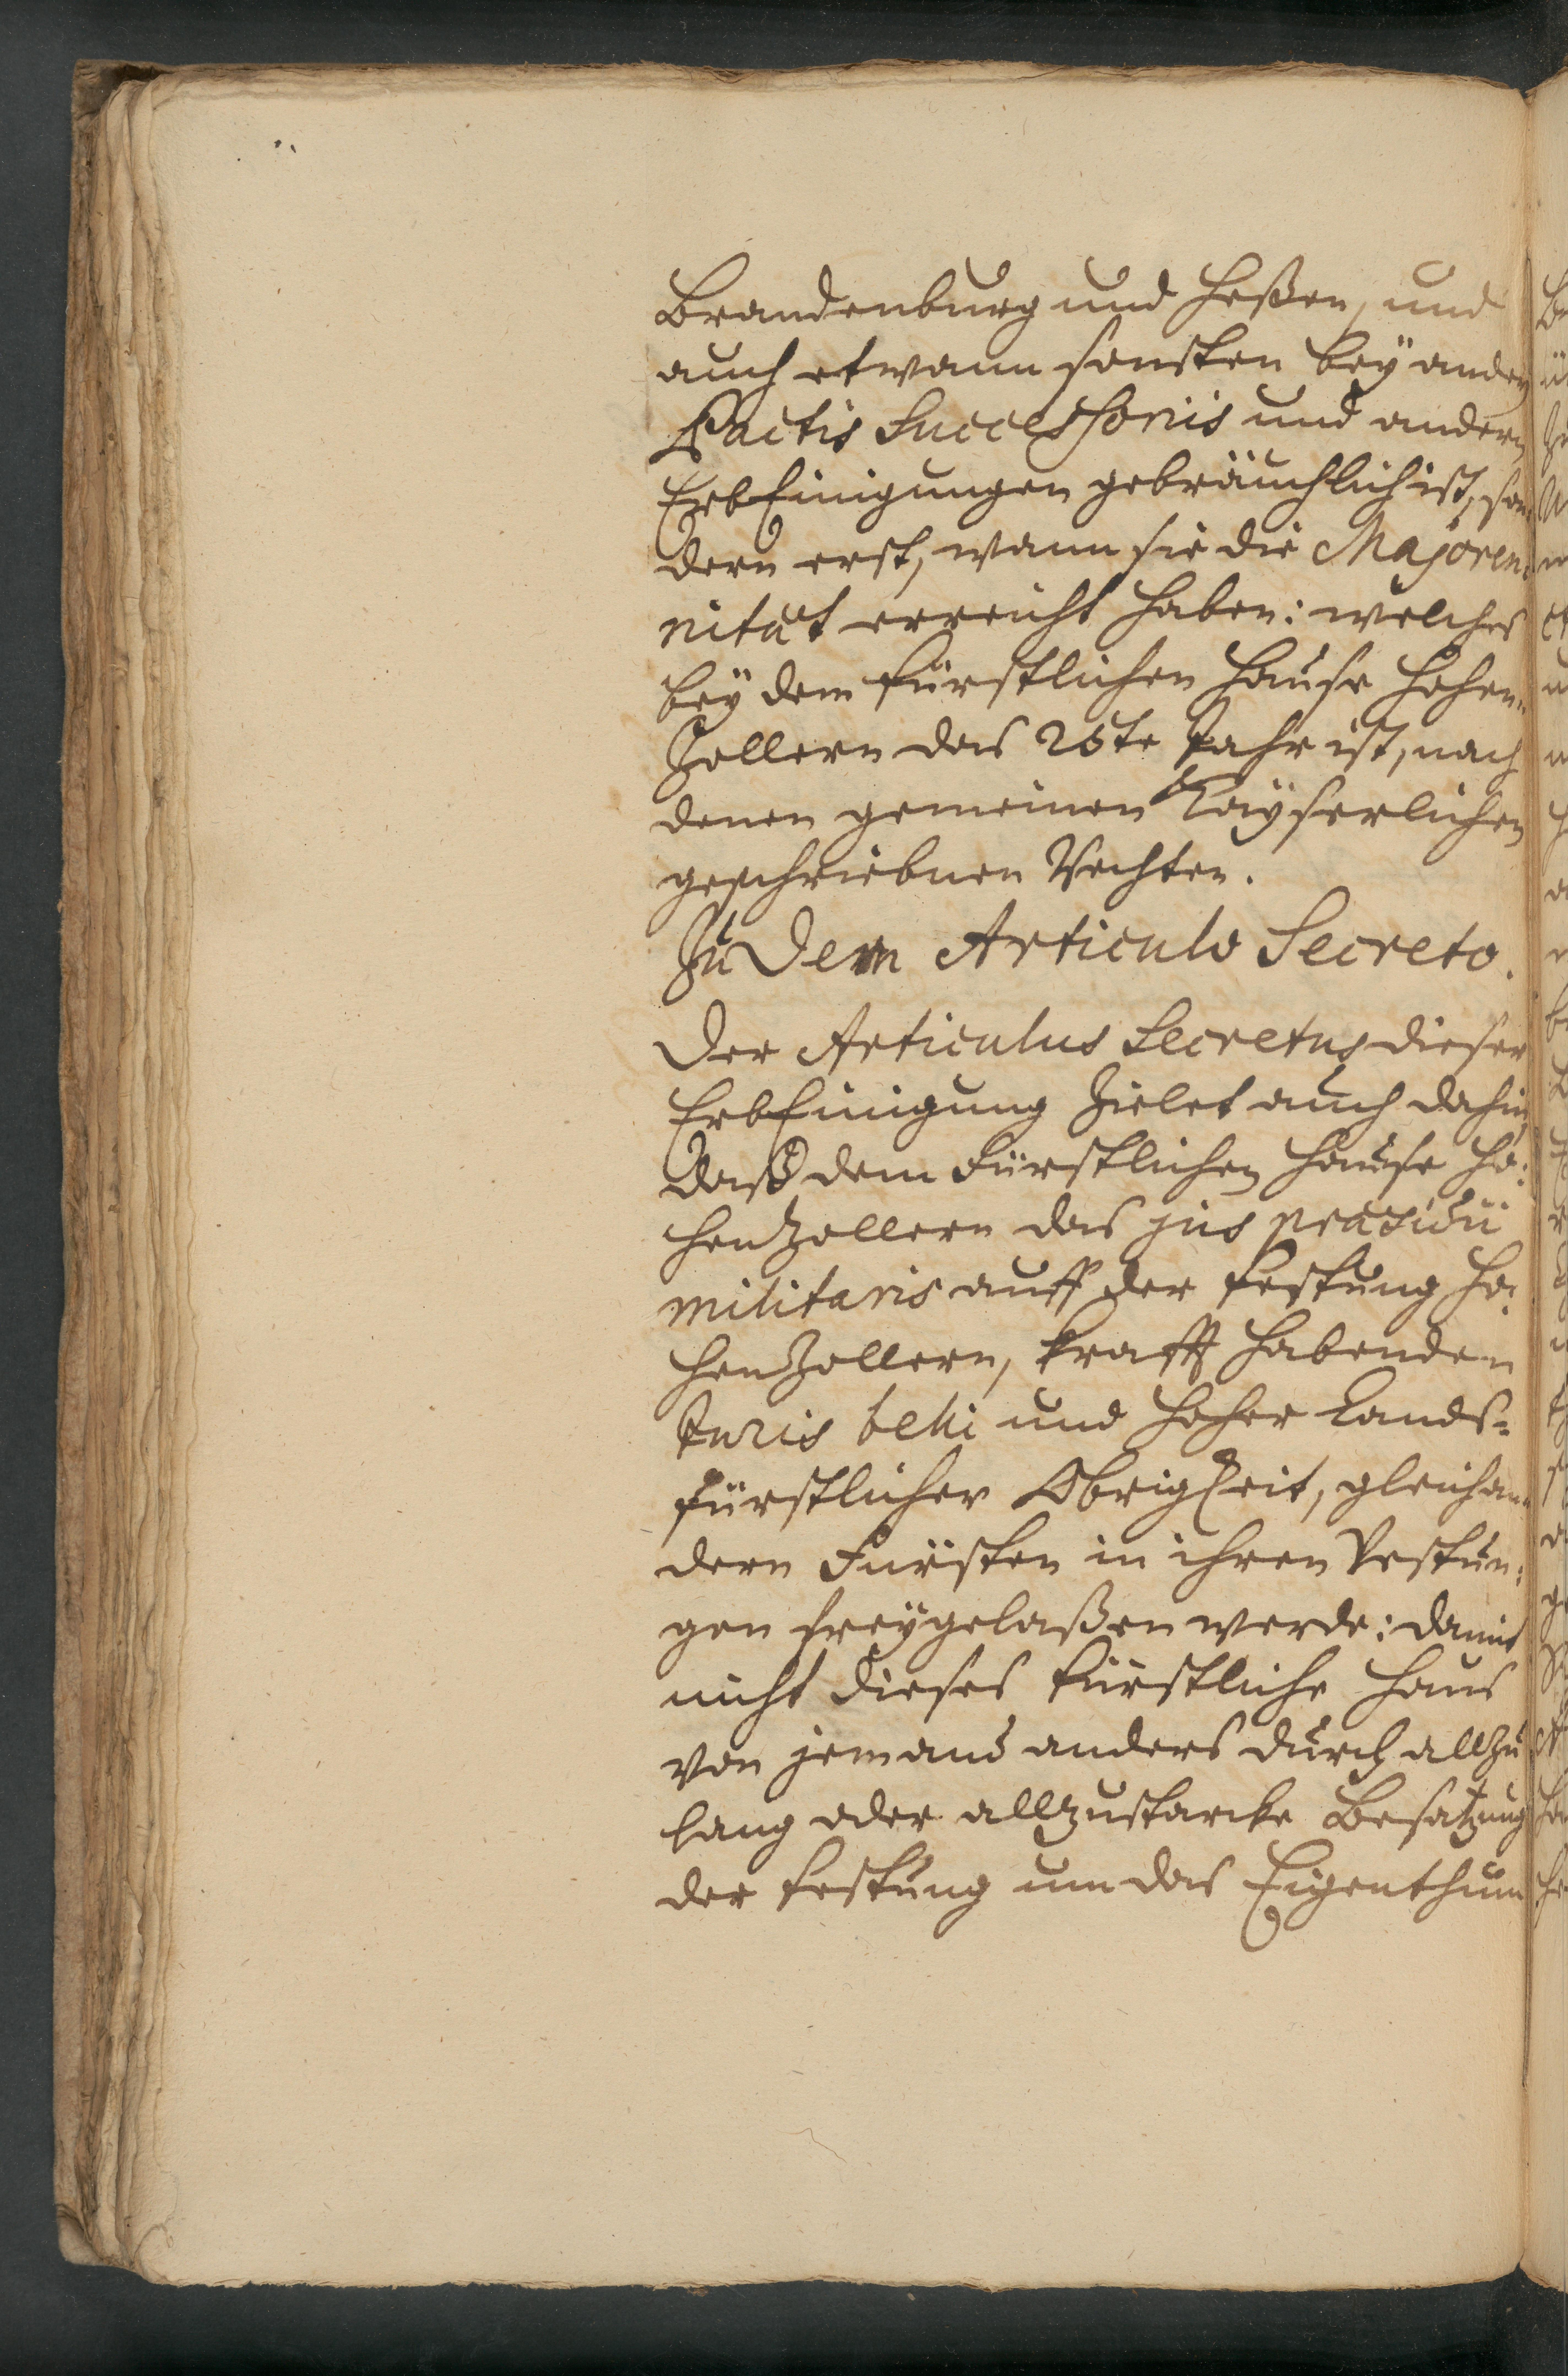 Brandenburg und Heßen, und
auch etwann sonsten bey andern
Pactis Successoriis und andern
ErbEinigungen gebräuchlich ist, son-
dern erst, wann sie die Majoren-
nität erreicht haben: welches
bey dem fürstlichen Hause Hohen-
Zollern das 25te Jahr ist, nach
denen gemeinen Kayserlichen
geschriebnen Rechten.
Zu dem Articulo Secreto.
Der Articulus Secretus dieser
ErbEinigung zielet auch dahin,
daß dem Fürstlichen Hause Ho-
henZollern das jus præsidii
militaris auff der Festung Ho-
henZollern, krafft habenden
Juris belli und hoher Lands-
fürstlicher Obrigkeit, gleich an-
dern Fürsten in ihren Vestun-
gen freygelaßen werde: damit
nicht dieses fürstliche Haus
von jemand anders durch allzu
lang oder allzustarcke Besatzung
der Festung um das Eigenthum